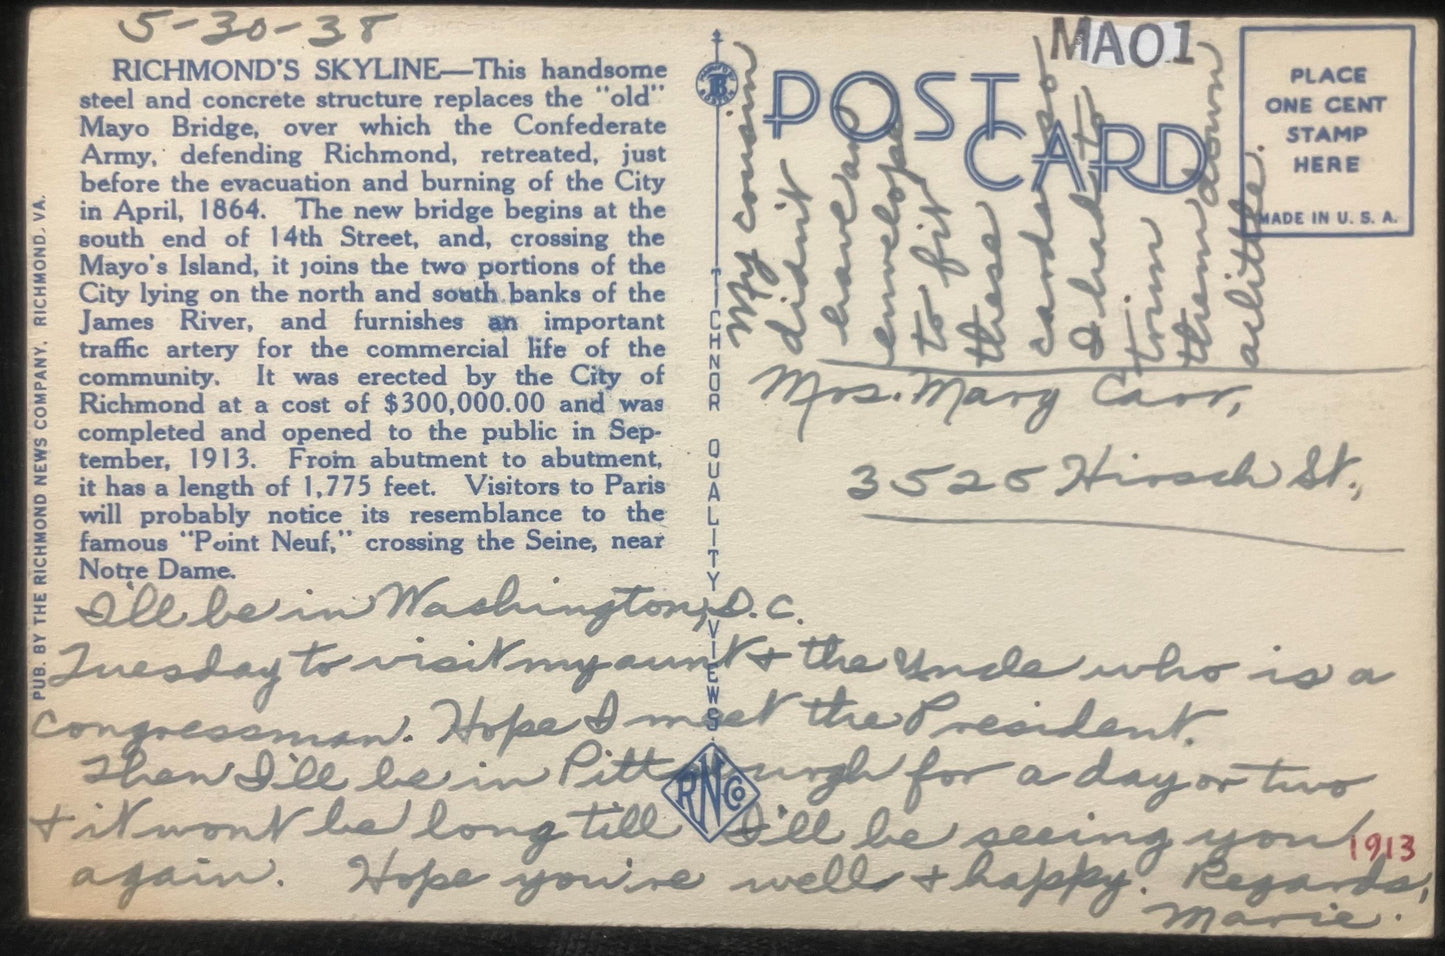 5-30-38
RICHMOND'S SKYLINE—This handsome
steel and concrete structure replaces the "old"
Mayo Bridge, over which the Confederate
Army, defending Richmond, retreated, just
before the evacuation and burning of the City
in April, 1864. The new bridge begins at the
south end of 14th Street, and, crossing the
Mayo's Island, it joins the two portions of the
City lying on the north and south banks of the
James River, and furnishes an important
traffic artery for the commercial life of the
community. It was erected by the City of
Richmond at a cost of $300,000.00 and was
completed and opened to the public in Sep-
tember, 1913. From abutment to abutment,
it has a length of 1,775 feet. Visitors to Paris
will probably notice its resemblance to the
famous "Point Neuf," crossing the Seine, near
Notre Dame.
PUB. BY THE RICHMOND NEWS COMPANY, RICHMOND, VA.
TICHNOR QUALITY VIEWS
MA01
POST
CARD
PLACE
ONE CENT
STAMP
HERE
MADE IN U. S. A.
My cousin
didn't
have an
envelope
to fit
these
cards so
I had to
trim
them down
a little.
Mrs. Mary Carr,
3525 Hirsch St.,
I'll be in Washington, D.C.
Tuesday to visit my aunt & the Uncle who is a
congressman. Hope I meet the President.
Then I'll be in Pittsburgh for a day or two
& it won't be long till I'll be seeing you
again. Hope you're well & happy. Regards,
Marie.
RNCo
1913